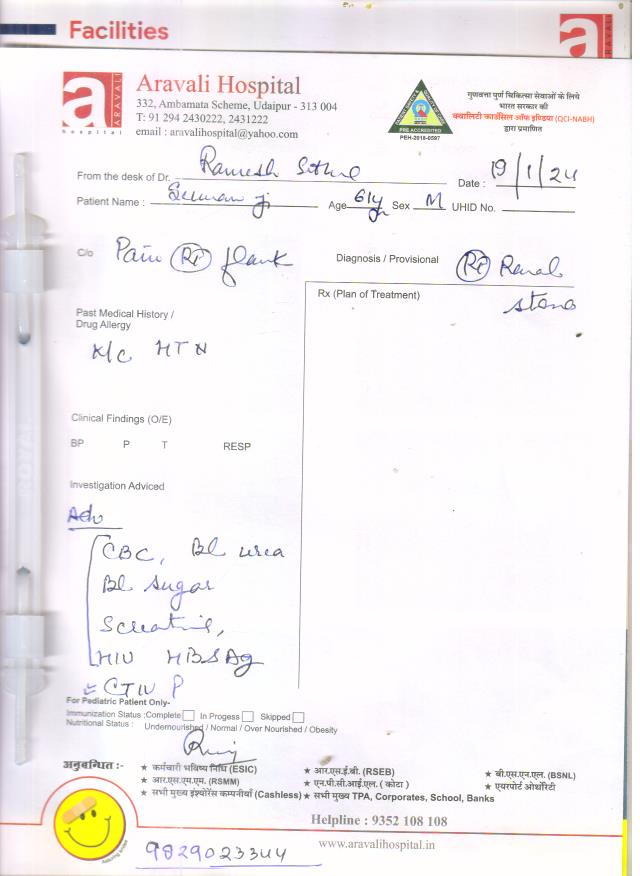 Facilities
ARAVALI
a ARAVALI
hospital
Aravali Hospital
332, Ambamata Scheme, Udaipur - 313 004
T: 91 294 2430222, 2431222
email : aravalihospital@yahoo.com
PRE ACCREDITED
PEH-2018-0597
गुणवत्ता पुर्ण चिकित्सा सेवाओं के लिये
भारत सरकार की
क्वालिटी काउंसिल ऑफ इण्डिया (QCI-NABH)
द्वारा प्रमाणित
From the desk of Dr. Ramesh Date : 19/1/24
Patient Name : Age 61y Sex M UHID No.
C/o Pain Rt flank
Diagnosis / Provisional Rt Renal stone
Rx (Plan of Treatment)
Past Medical History /
Drug Allergy
K/c HTN
Clinical Findings (O/E)
BP P T RESP
Investigation Adviced
Adv
CBC, Bl urea
Bl sugar
S creatinine,
HIV HBSAg
CTIV P
For Pediatric Patient Only-
Immunization Status ;Complete In Progess Skipped
Nutritional Status : Undernourished / Normal / Over Nourished / Obesity
अनुबन्धित :-
★ कर्मचारी भविष्य निधि (ESIC) ★ आर.एस.ई.बी. (RSEB) ★ बी.एस.एन.एल. (BSNL)
★ आर.एस.एम.एम. (RSMM) ★ एन.पी.सी.आई.एल. ( कोटा ) ★ एयरपोर्ट ओथॉरिटी
★ सभी मुख्य इंश्योरेंस कम्पनीयाँ (Cashless) ★ सभी मुख्य TPA, Corporates, School, Banks
Helpline : 9352 108 108
www.aravalihospital.in
9829023344